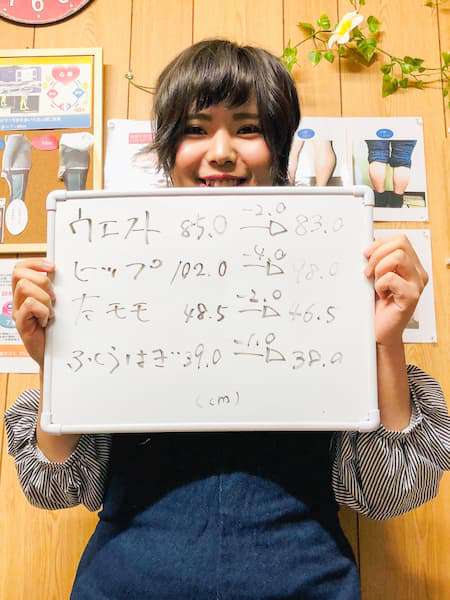 ウエスト 85.0 -2.0→ 83.0
ヒップ 102.0 -4.0→ 98.0
左モモ 48.5 -2.0→ 46.5
ふくらはぎ 39.0 -1.0→ 38.0
(cm)